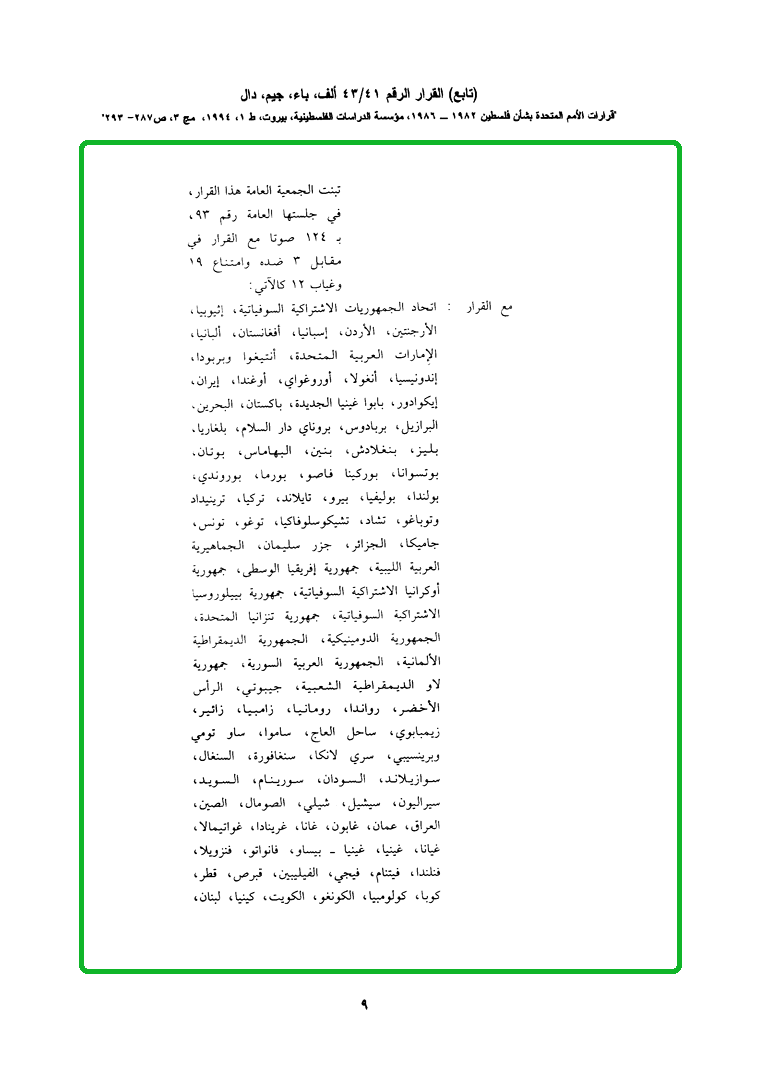 (تابع) القرار الرقم ٤٣/٤١ ألف، باء، جيم، دال
"قرارات الأمم المتحدة بشأن فلسطين ١٩٨٢ ــ ١٩٨٦، مؤسسة الدراسات الفلسطينية، بيروت، ط ١، ١٩٩٤، مج ٣، ص٢٨٧- ٢٩٣"
تبنت الجمعية العامة هذا القرار،
في جلستها العامة رقم ٩٣،
بـ ١٢٤ صوتا مع القرار في
مقابل ٣ ضده وامتناع ١٩
وغياب ١٢ كالآتي:
مع القرار : اتحاد الجمهوريات الاشتراكية السوفياتية، إثيوبيا،
الأرجنتين، الأردن، إسبانيا، أفغانستان، ألبانيا،
الإمارات العربية المتحدة، أنتيغوا وبربودا،
إندونيسيا، أنغولا، أوروغواي، أوغندا، إيران،
إيكوادور، بابوا غينيا الجديدة، باكستان، البحرين،
البرازيل، بربادوس، بروناي دار السلام، بلغاريا،
بليز، بنغلادش، بنين، البهاماس، بوتان،
بوتسوانا، بوركينا فاصو، بورما، بوروندي،
بولندا، بوليفيا، بيرو، تايلاند، تركيا، ترينيداد
وتوباغو، تشاد، تشيكوسلوفاكيا، توغو، تونس،
جاميكا، الجزائر، جزر سليمان، الجماهيرية
العربية الليبية، جمهورية إفريقيا الوسطى، جمهورية
أوكرانيا الاشتراكية السوفياتية، جمهورية بييلوروسيا
الاشتراكية السوفياتية، جمهورية تنزانيا المتحدة،
الجمهورية الدومينيكية، الجمهورية الديمقراطية
الألمانية، الجمهورية العربية السورية، جمهورية
لاو الديمقراطية الشعبية، جيبوتي، الرأس
الأخضر، رواندا، رومانيا، زامبيا، زائير،
زيمبابوي، ساحل العاج، ساموا، ساو تومي
وبرينسيبي، سري لانكا، سنغافورة، السنغال،
سوازيلاند، السودان، سورينام، السويد،
سيراليون، سيشيل، شيلي، الصومال، الصين،
العراق، عمان، غابون، غانا، غرينادا، غواتيمالا،
غيانا، غينيا، غينيا ـ بيساو، فانواتو، فنزويلا،
فنلندا، فيتنام، فيجي، الفيليبين، قبرص، قطر،
كوبا، كولومبيا، الكونغو، الكويت، كينيا، لبنان،
٩